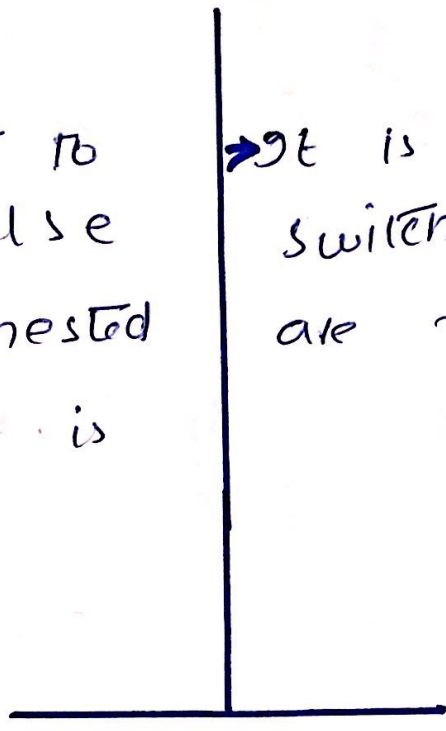 to
else
nested
is
→ It is
switch
are